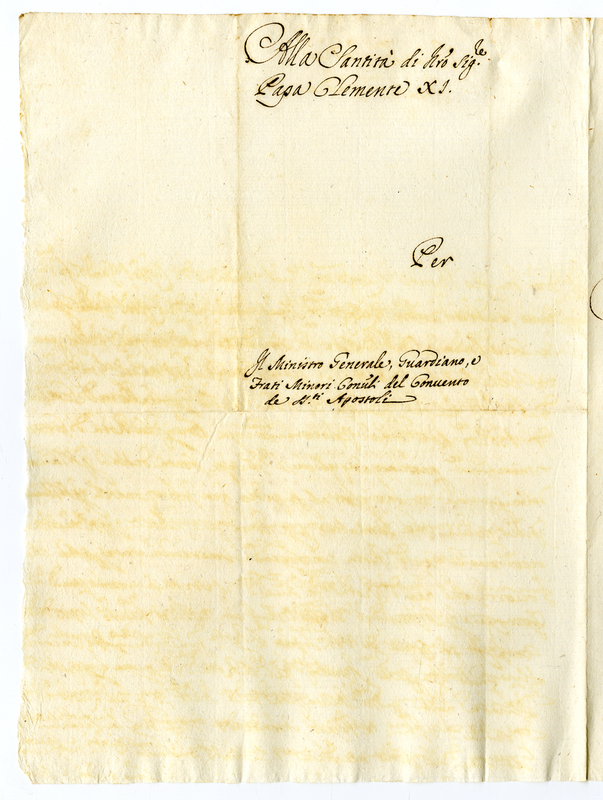 Alla Santità di Nrõ Sig.re
Papa Clemente XI.
Per
Il Ministro Generale, Guardiano, e
Frati Minori Conũli del Convento
de SS.ti Apostoli